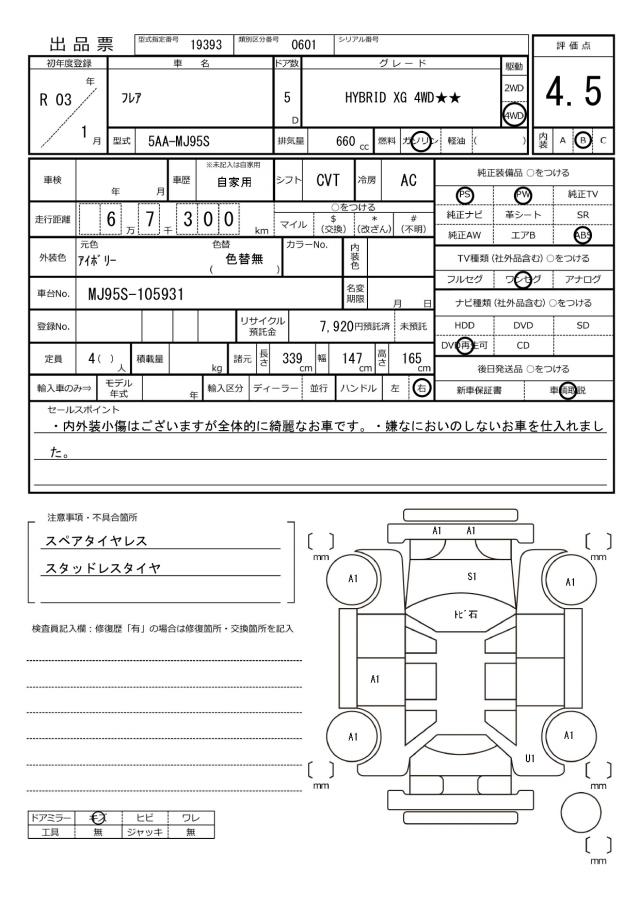 出品票 型式指定番号 19393 類別区分番号 0601 シリアル番号
評価点
4.5
内装 A B C
初年度登録 車名 ドア数 グレード 駆動
R 03 年 1 月
フレア
5 D
HYBRID XG 4WD★★
2WD
4WD
型式 5AA-MJ95S 排気量 660 cc 燃料 ガソリン 軽油 ( )
車検 年 月 車歴 ※未記入は自家用 自家用 シフト CVT 冷房 AC
走行距離 6 万 7 千 3 0 0 km
○をつける
マイル $ (交換) * (改ざん) # (不明)
外装色 元色 アイボリー 色替 ( 色替無 ) カラーNo. 内装色
車台No. MJ95S-105931 名変期限 月 日
登録No. リサイクル預託金 7,920円預託済 未預託
定員 4 ( ) 人 積載量 kg 諸元 長さ 339 cm 幅 147 cm 高さ 165 cm
輸入車のみ⇒ モデル年式 年 輸入区分 ディーラー 並行 ハンドル 左 右
純正装備品 ○をつける
PS PW 純正TV
純正ナビ 革シート SR
純正AW エアB ABS
TV種類 (社外品含む) ○をつける
フルセグ ワンセグ アナログ
ナビ種類 (社外品含む) ○をつける
HDD DVD SD
DVD再生可 CD
後日発送品 ○をつける
新車保証書 車輌取説
セールスポイント
・内外装小傷はございますが全体的に綺麗なお車です。・嫌なにおいのしないお車を仕入れまし
た。
注意事項・不具合箇所
スペアタイヤレス
スタッドレスタイヤ
検査員記入欄：修復歴「有」の場合は修復箇所・交換箇所を記入
ドアミラー キズ ヒビ ワレ
工具 無 ジャッキ 無
A1 A1
mm mm
A1 S1 A1
トビ石
A1
A1 A1
U1
mm mm
mm